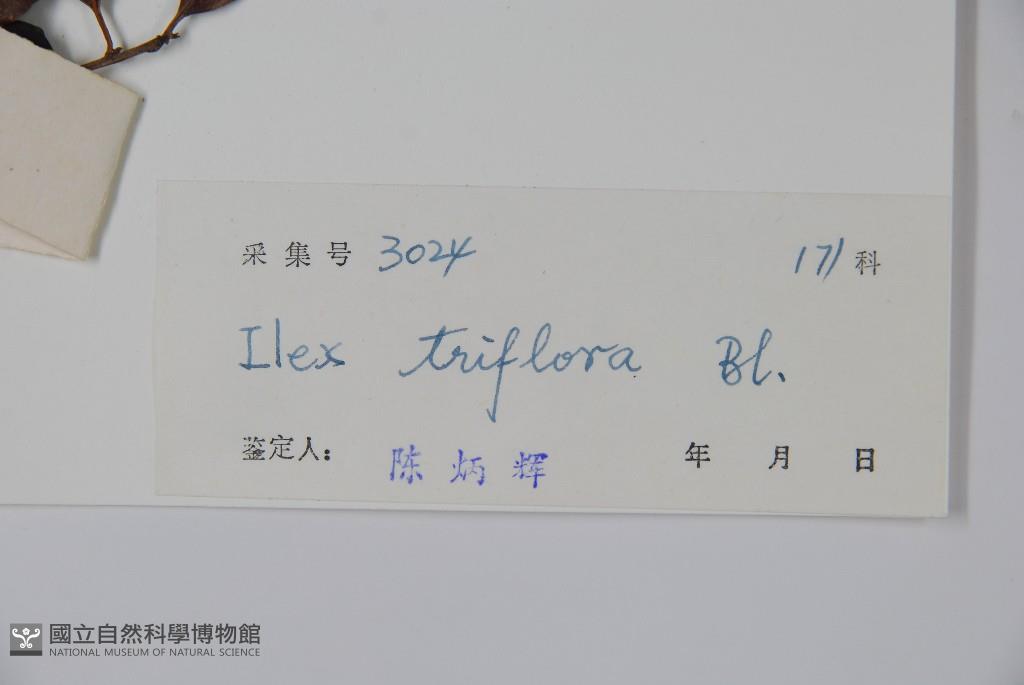 采集号 3024 171科
Ilex triflora Bl.
鉴定人: 陈炳辉 年 月 日
國立自然科學博物館
NATIONAL MUSEUM OF NATURAL SCIENCE